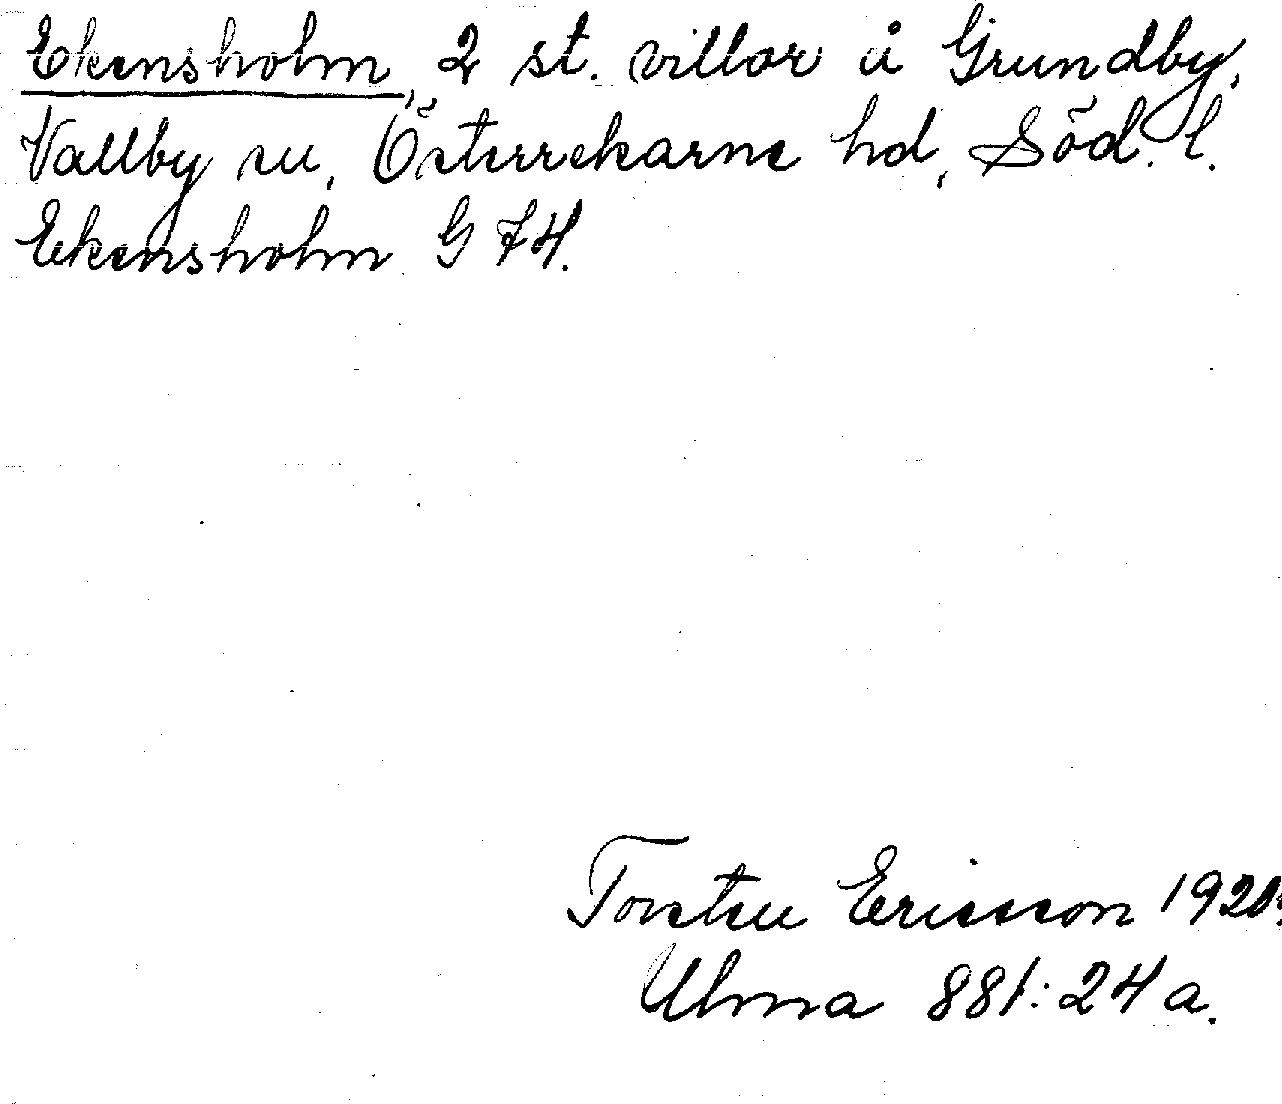 Ekensholm, 2 st. villor å Grundby,
Vallby sn, Österrekarne hd, Söd. l.
Ekensholm G 74.
Torsten Ericsson 1920.
Ulma 881:24 a.